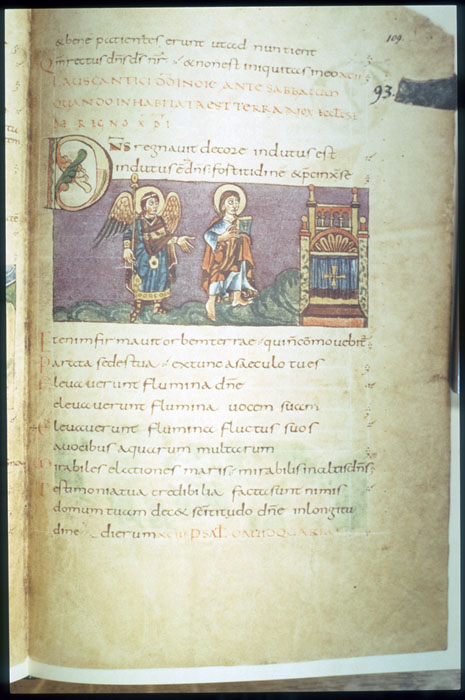 109.
& bene patientes erunt utad nuntient
Qm rectus dns ds nr & non est iniquitas in eo
93.
LAUS CANTICI DD INOIE ANTE SABBATUM
QUANDO INHABITATA EST TERRA
DE REGNO XPI
DNS regnauit decore indutus est
indutus e dns fortitudine &
Etenim firmauit orbem terrae qui non
Parata sedes tua ex tunc a saeculo tu es
Eleuauerunt flumina dne
eleuauerunt flumina uocem suam
Eleuauerunt flumina fluctus suos
a uocibus aquarum multarum
Mirabiles elationes maris mirabilis in altis dns
Testimonia tua credibilia facta sunt nimis
domum tuam dec& scitudo dne in longitu
dine dierum PSAL